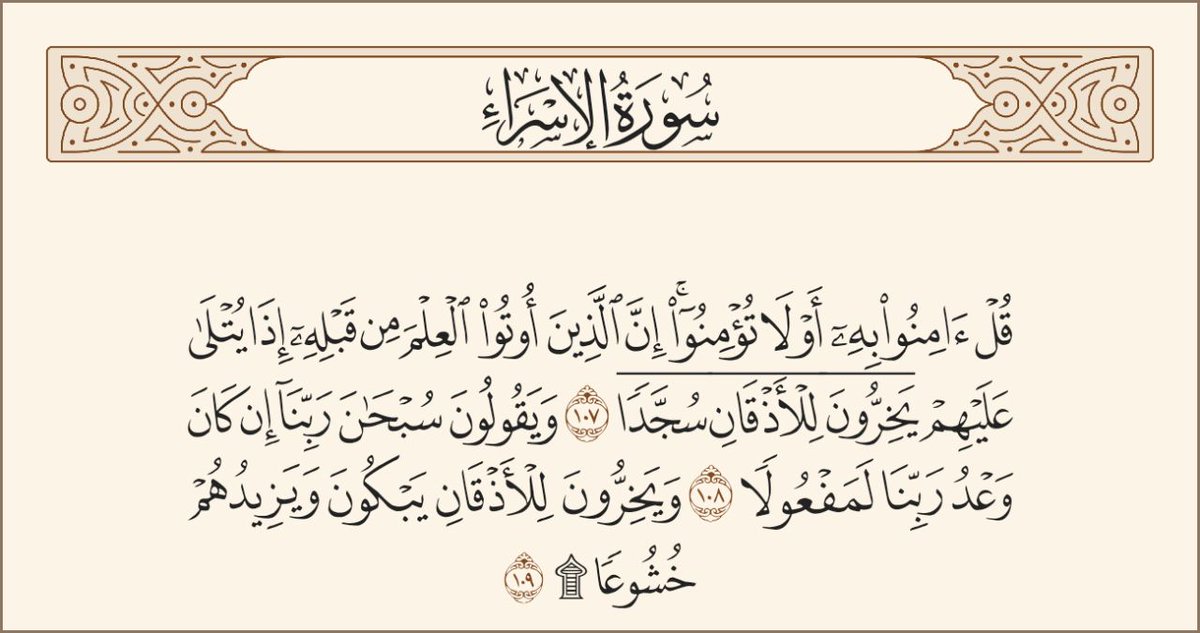 سُورَةُ الإِسْرَاءِ
قُلْ ءَامِنُوا۟ بِهِۦٓ أَوْ لَا تُؤْمِنُوٓا۟ ۚ إِنَّ ٱلَّذِينَ أُوتُوا۟ ٱلْعِلْمَ مِن قَبْلِهِۦٓ إِذَا يُتْلَىٰ
عَلَيْهِمْ يَخِرُّونَ لِلْأَذْقَانِ سُجَّدًا ١٠٧ وَيَقُولُونَ سُبْحَـٰنَ رَبِّنَآ إِن كَانَ
وَعْدُ رَبِّنَا لَمَفْعُولًا ١٠٨ وَيَخِرُّونَ لِلْأَذْقَانِ يَبْكُونَ وَيَزِيدُهُمْ
خُشُوعًا ۩ ١٠٩